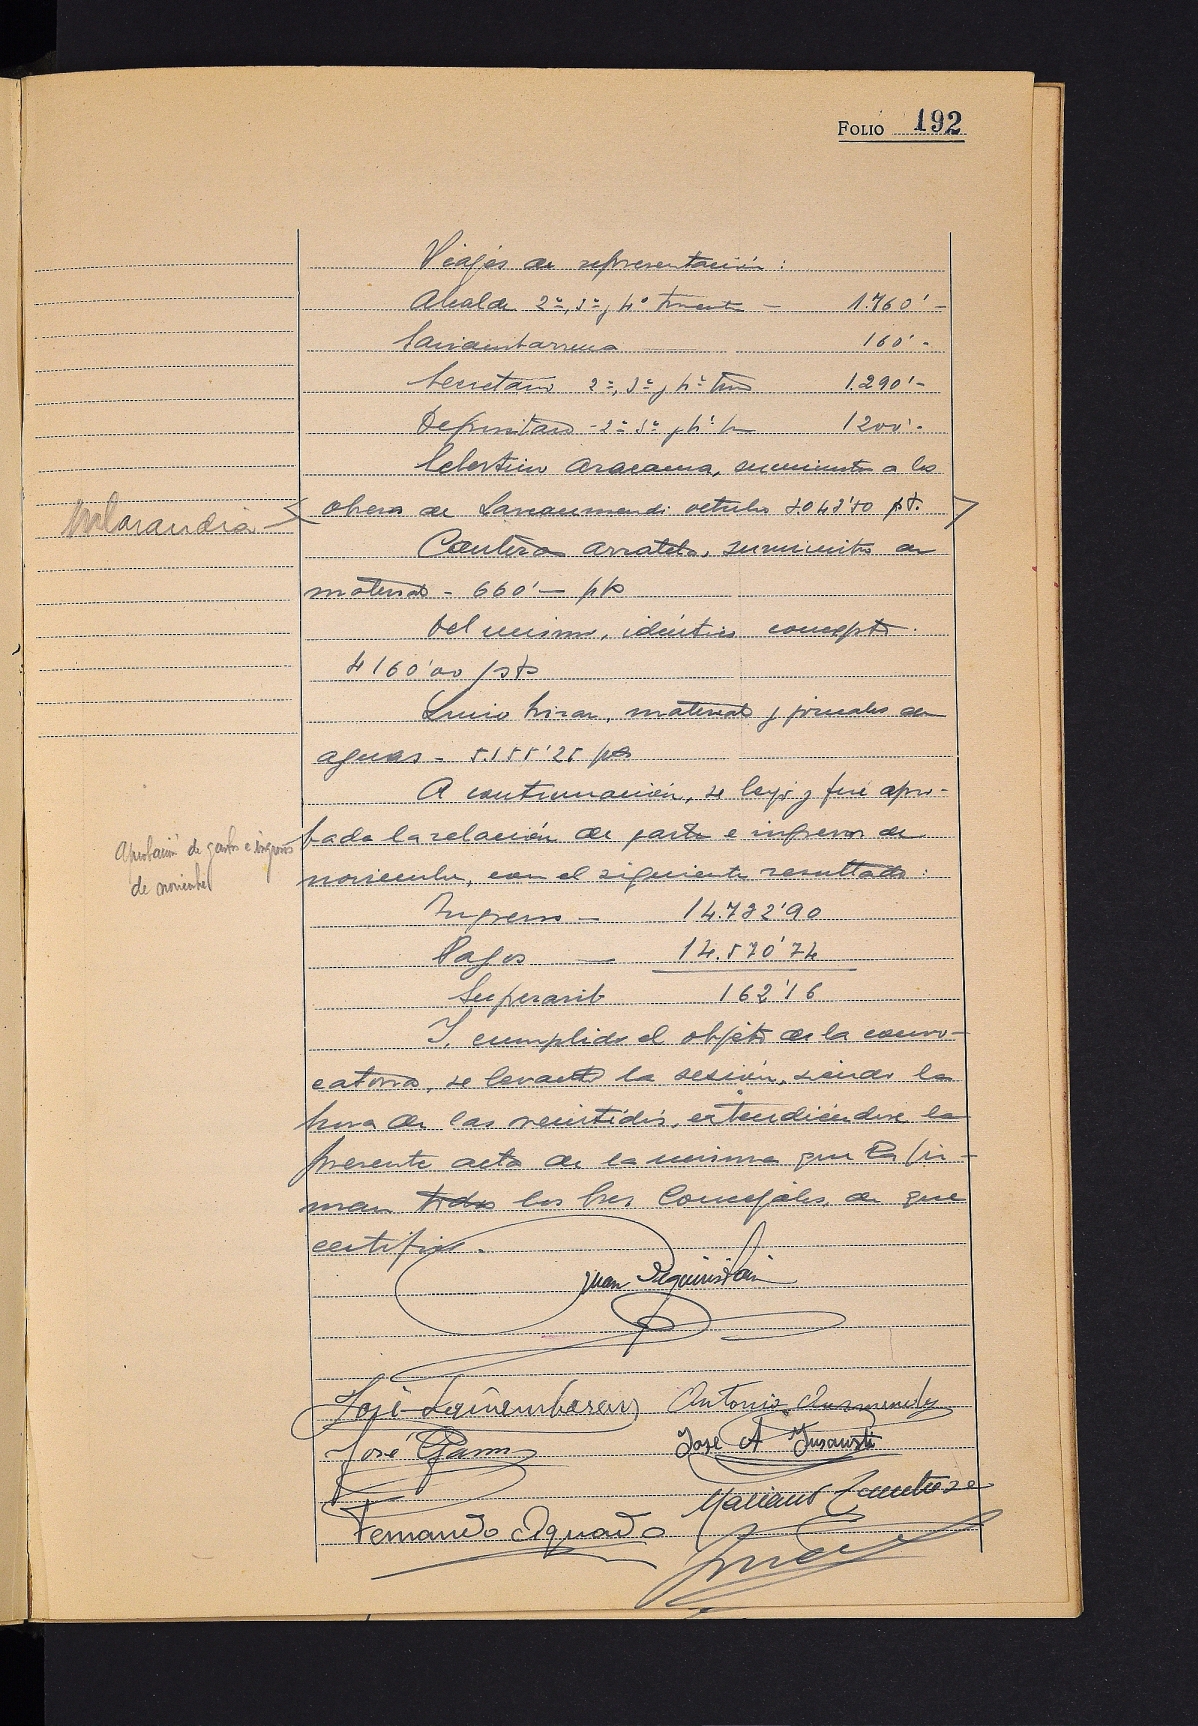 FOLIO 192
Viajes de representación:
Alcalde 2º, 3º y 4º trimestre — 1.760'-
Larrambarrena 160'-
Secretario 2º, 3º y 4º trim 1.290'-
Depositario - 2º 3º y 4º tr 1200'-
Celestino Aracama, suministro a las
obras de Lascaumendi
pts.
Cantera Arrateta, suministro de
material - 660'— pts
Del mismo, idéntico concepto.
4160'00 pts
Lucio material y jornales de
aguas - 5.155'25 pts
A continuación, se leyó y fué apro-
Aprobación de gastos e ingresos
de noviembre
bada la relación de gastos e ingresos de
noviembre, con el siguiente resultado:
Ingresos — 14.732'90
Pagos — 14.570'74
Superavit 162'16
Y, cumplido el objeto de la convo-
catoria, se levantó la sesión, siendo la
hora de las veintidós, extendiéndose la
presente acta de la misma que la fir-
man todos los Sres Concejales, de que
certifico.
Juan Eguiristain
José Antonio
José José A Insausti
Fernando Aguado Mariano